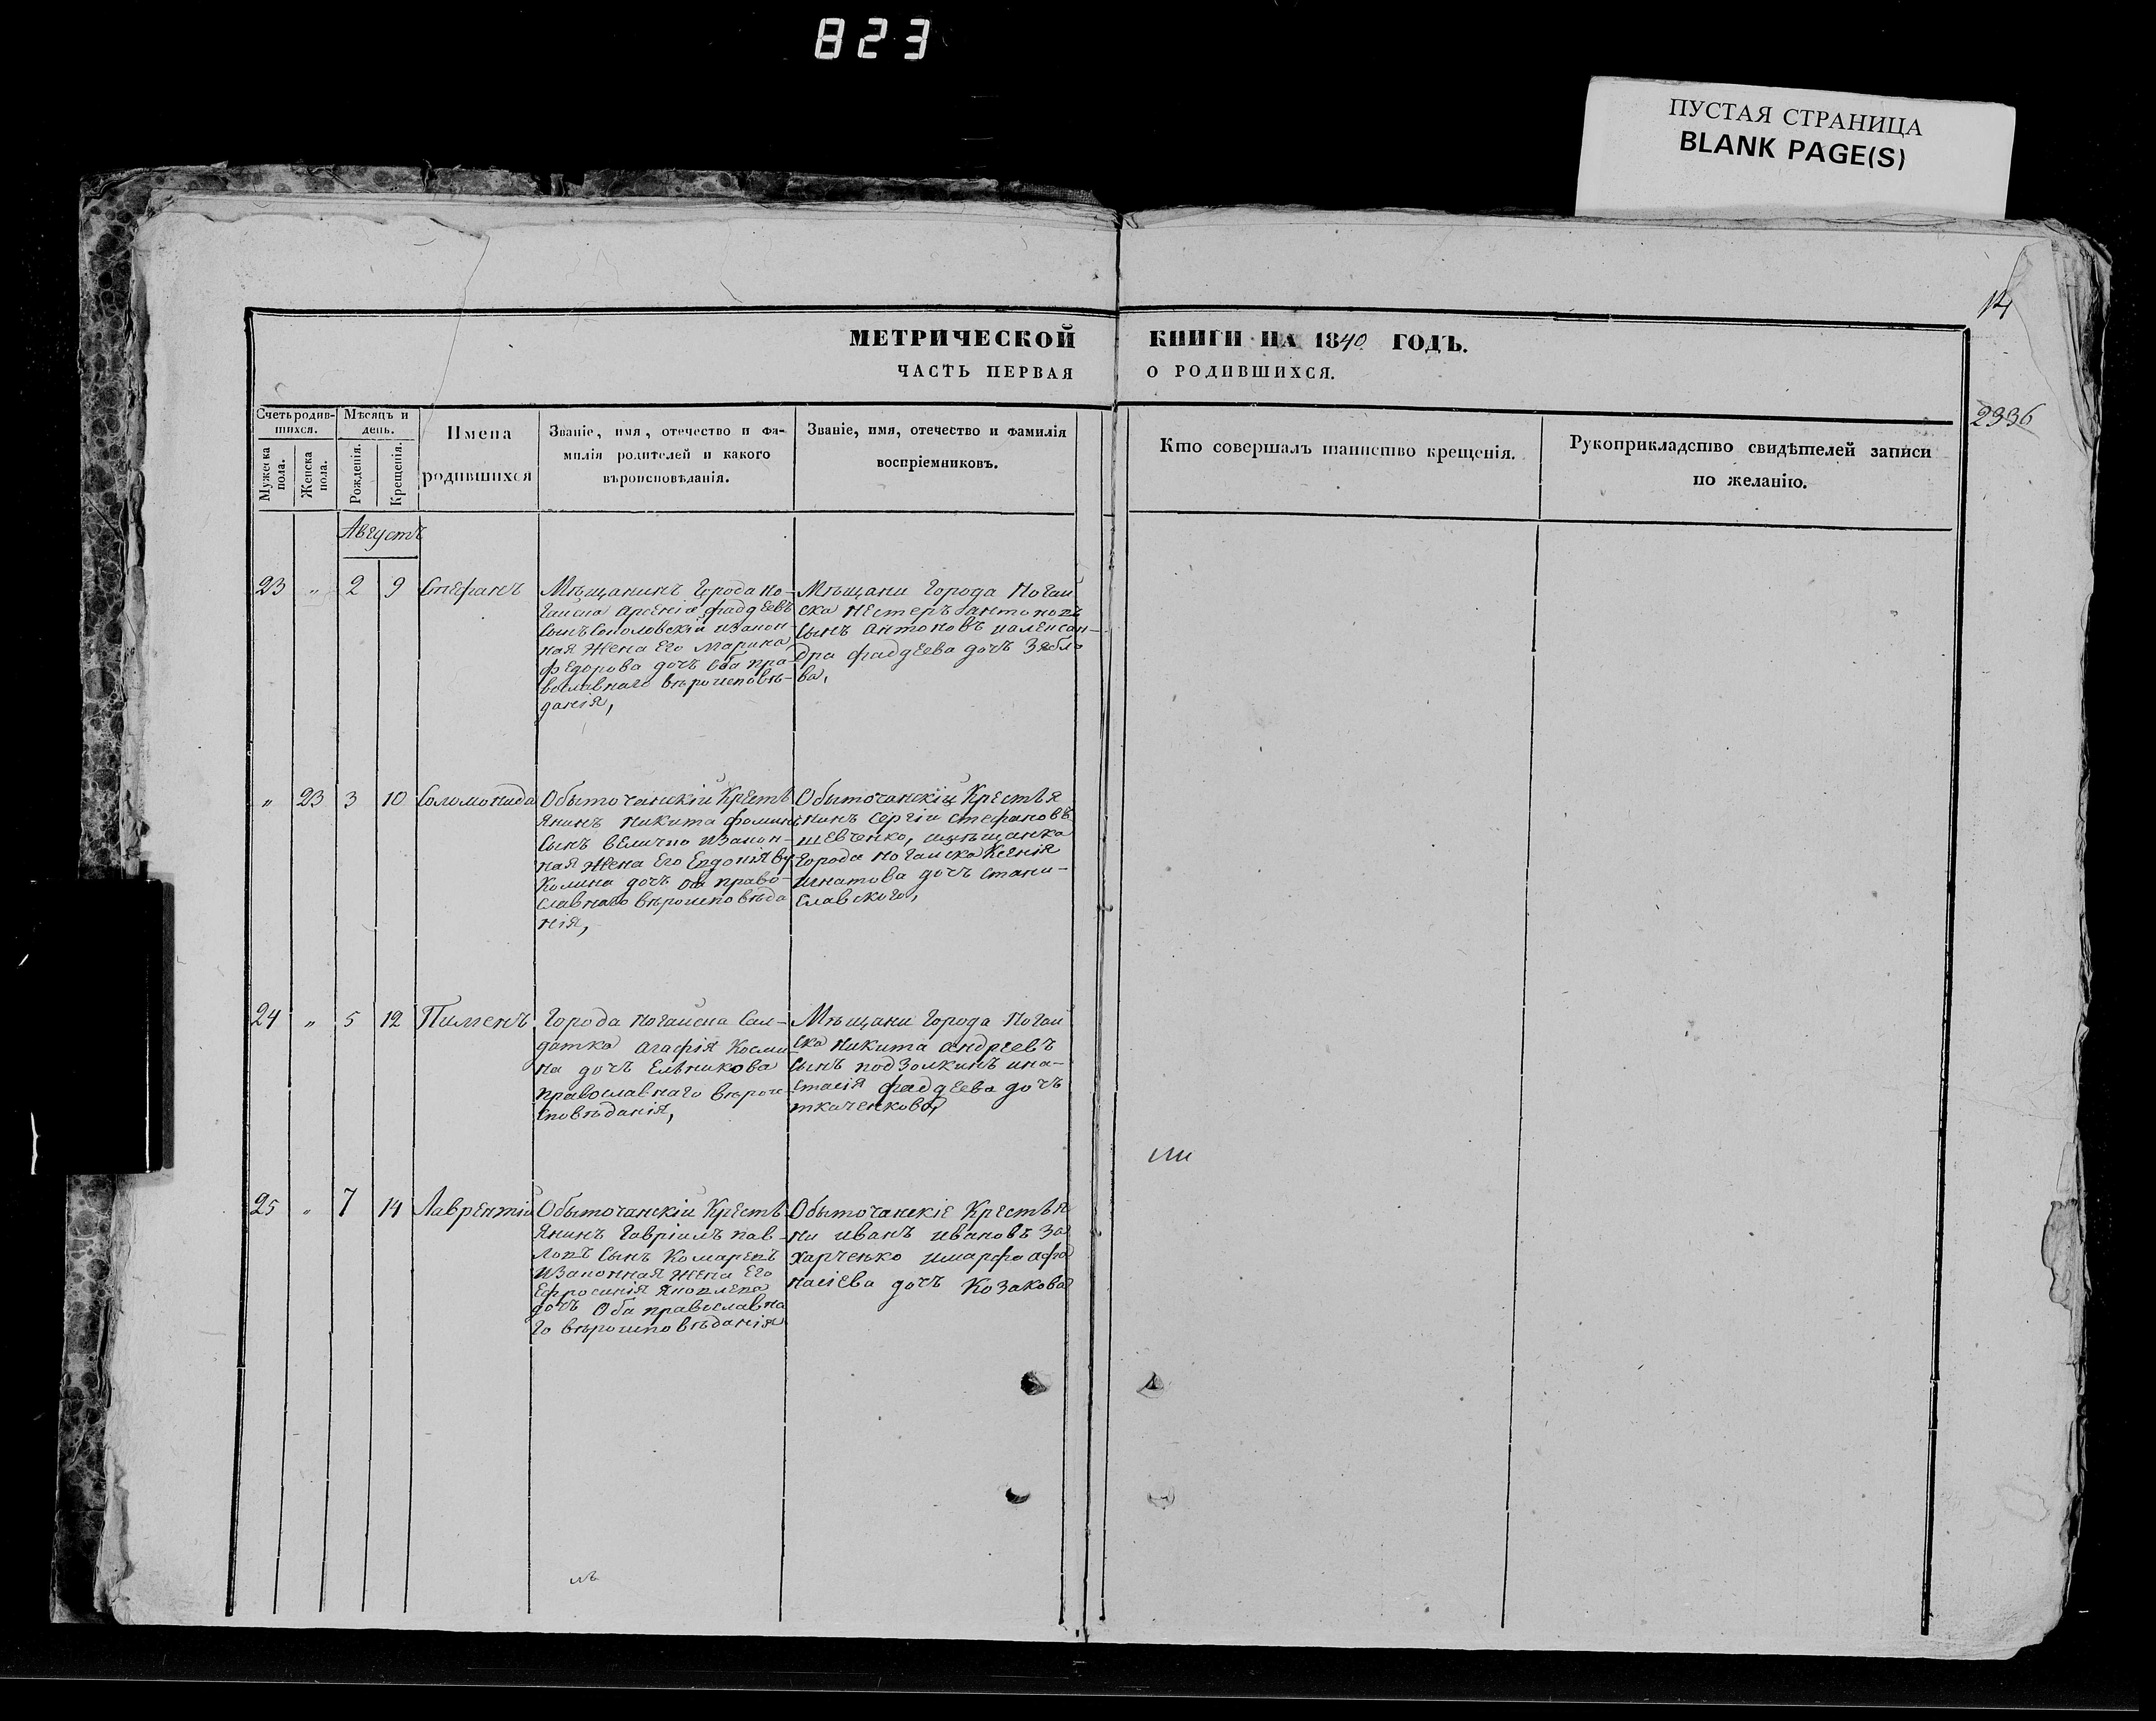 823
ПУСТАЯ СТРАНИЦА
BLANK PAGE(S)
14
МЕТРИЧЕСКОЙ КНИГИ НА 1840 ГОДЪ.
ЧАСТЬ ПЕРВАЯ О РОДИВШИХСЯ.
2336
Счетъ родив-
шихся.
Мужеска
пола.
Женска
пола.
Мѣсяцъ и
день.
Рожденія.
Крещенія.
Имена
родившихся
Званіе, имя, отечество и фа-
милія родителей и какого
вѣроисповѣданія.
Званіе, имя, отечество и фамилія
воспріемниковъ.
Кто совершалъ таинство крещенія.
Рукоприкладство свидѣтелей записи
по желанію.
Августъ
23 " 2 9 Стефанъ
Мѣщанинъ Города Но-
гайска Арсеній фаддеевъ
сынъ Соколовскій изакон-
ная жена Его Марина
федорова дочъ оба пра-
вославнаго вѣроисповѣ-
данія,
Мѣщани Города Ногай
ска Нестеръ Антоновъ
сынъ Антоновъ иалексан-
дра фаддеева дочъ Зябло
ва,
" 23 3 10 Соломонида
Обыточанскій Крестъ
янинъ Никита фоминъ
сынъ Величко изакон-
ная жена Его Евдокія Ву
Колина дочъ оба право-
славнаго вѣроисповѣда
нія,
Обыточанскій Крестья
нинъ Сергій Стефановъ
шевченко, имѣщанка
Города Ногайска Ксенія
игнатова дочъ стани-
славского,
24 " 5 12 Пименъ
Города Ногайска Сал-
датка Агафія Косми
на дочъ Елѣникова
православнаго вѣрои-
сповѣданія,
Мѣщани Города Ногай
ска Никита андреевъ
сынъ подзолкинъ ина-
стасія фаддеева дочъ
ткаченкова,
25 " 7 14 Лаврентій
Обыточанскій Крестъ
янинъ Гавріилъ пав-
ловъ сынъ Комаревъ
изаконная жена Его
Ефросинія Яковлева
дочъ Оба православна
го вѣроисповѣданія
Обыточанскіе Крестья
ни иванъ ивановъ За
харченко имарфа афа
насіева дочъ Козакова